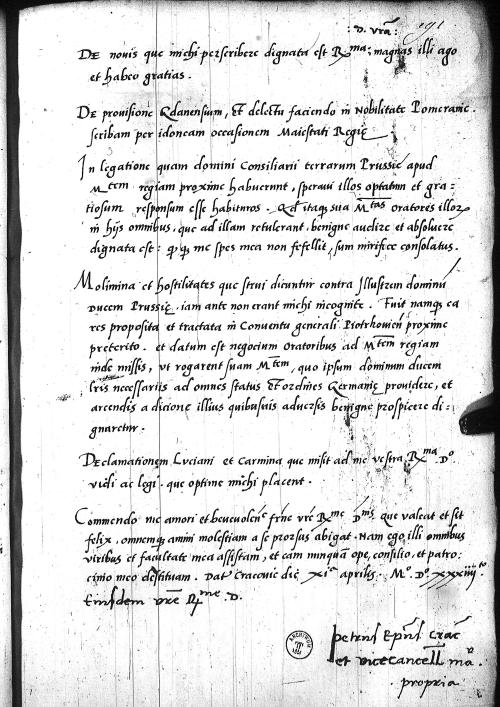 : D. vrã :
191
De nouis que michi perscribere dignata est R^ma: magnas illi ago
et habeo gratias.
De prouisione Gdanensium, Et delectu faciendo in Nobilitate Pomeranie.
scribam per idoneam occasionem Maiestati Regie
In legatione quam domini Consiliarii terrarum Prussie apud
M^tem regiam proxime habuerunt, speraui illos optatum et gra=
tiosum responsum esse habituros. Qd itaq sua M^tas oratores illoꝝ
in hijs omnibus, que ad illam retulerant, benigne audire et absoluere
dignata est: me spes mea non fefellit, sum mirifice consolatus.
Molimina et hostilitates que strui dicuntur contra Illustrem dominũ
Ducem Prussie, iam ante non erant michi incognite. Fuit namq ea
res proposita et tractata in Conuentu generali Piotrkouien̄ proxime
preterito. et datum est negocium Oratoribus ad M^tem regiam
inde missis, vt rogarent suam M^tem, quo ipsum dominum ducem
lris necessariis ad omnes status Et ordines Germanie prouidere, et
arcendis a dicione illius quibusuis aduersis benigne prospicere di=
gnaretur.
Declamationem Luciani et Carmina que misit ad me vestra R^ma D^o
vidi ac legi. que optime michi placent.
Commendo me amori et beneuolencie frne vre R^me D^nis, que valeat et sit
felix, omnemq animi molestiam a se prorsus abigat. Nam ego illi omnibus
viribus et facultate mea assistam, et eam nunquã ope, consilio et patro:
cinio meo destituam. Dat Cracouie die XI^a aprilis. M^o. D^o. xxxiiii^to.
Eiusdem vre R^me D.
Petrus Ep̄us Crac̄
et vicecancell̄ mã
propria
ARCHIWUM